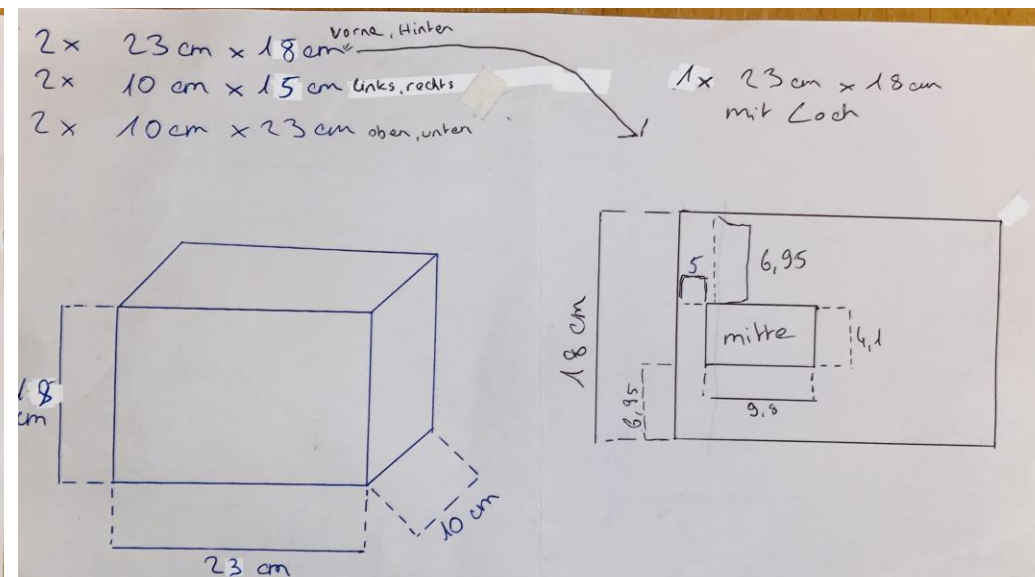 2x 23 cm x 18 cm vorne, Hinten
2x 10 cm x 15 cm links, rechts
2x 10 cm x 23 cm oben, unten
1x 23 cm x 18 cm
mit Loch
18 cm
23 cm
10 cm
18 cm
5
6,95
mitte
4,1
9,8
6,95